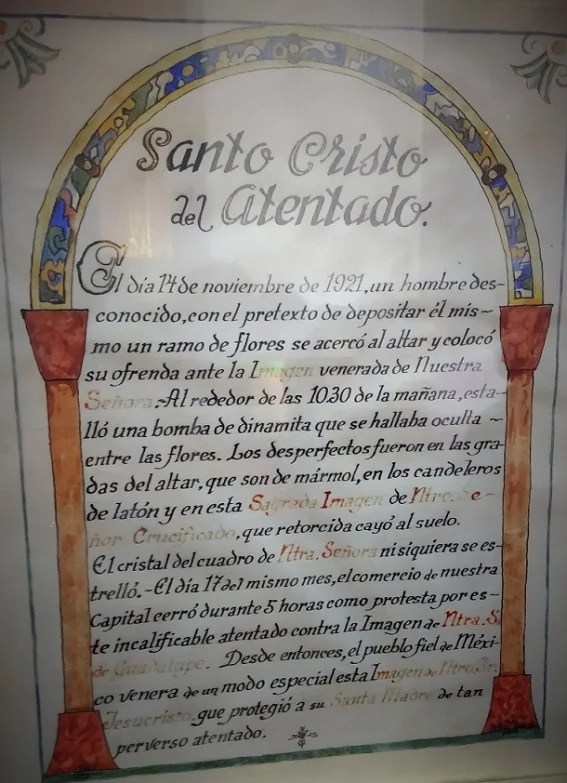 Santo Cristo
del Atentado.
El día 14 de noviembre de 1921, un hombre des-
conocido, con el pretexto de depositar él mis-
mo un ramo de flores se acercó al altar y colocó
su ofrenda ante la Imagen venerada de Nuestra
Señora.-Al rededor de las 10.30 de la mañana, esta-
lló una bomba de dinamita que se hallaba oculta -
entre las flores. Los desperfectos fueron en las gra-
das del altar, que son de mármol, en los candeleros
de latón y en esta Sagrada Imagen de Ntro. Se-
ñor Crucificado, que retorcida cayó al suelo.
El cristal del cuadro de Ntra. Señora ni siquiera se es-
trelló.-El día 17 del mismo mes, el comercio de nuestra
Capital cerró durante 5 horas como protesta por es-
te incalificable atentado contra la Imagen de Ntra. S.
de Guadalupe. Desde entonces, el pueblo fiel de Méxi-
co venera de un modo especial esta Imagen de Ntro. Sr.
Jesucristo, que protegió a su Santa Madre de tan
perverso atentado.